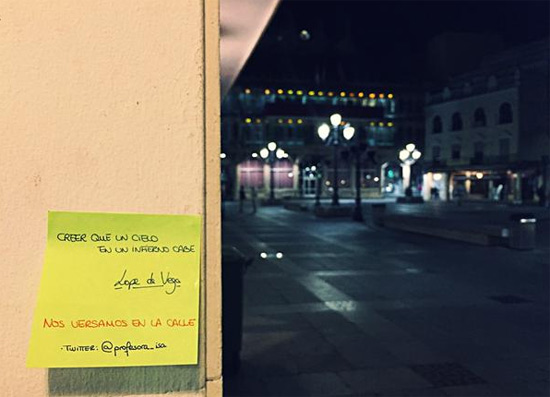 CREER QUE UN CIELO
EN UN INFIERNO CABE
Lope de Vega
NOS VERSAMOS EN LA CALLE
-TWITTER: @profesora_isa